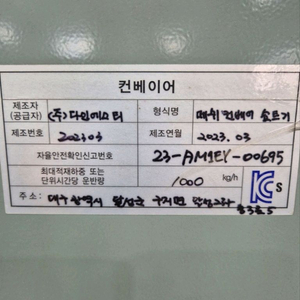 컨베이어
제조자 (주)다인에스티 형식명 메쉬 컨베이 숀트기
(공급자)
제조번호 202303 제조연월 2023.03
자율안전확인신고번호 23-AM1EY-00695
최대적재하중 또는 1000 kg/h
단위시간당 운반량
주소: 대구 광역시 달성군 구지면
S